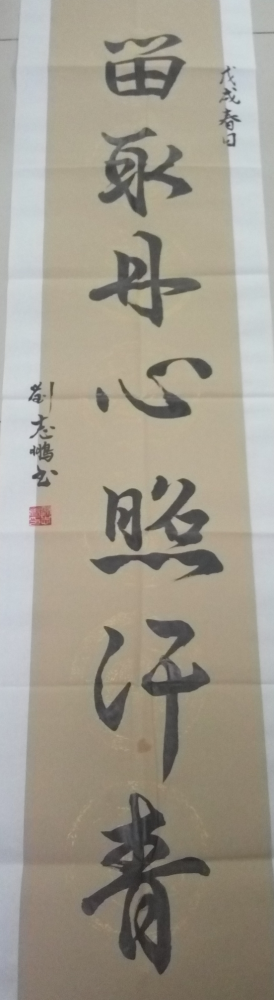 戊戌春日
留取丹心照汗青
劉志鵬书